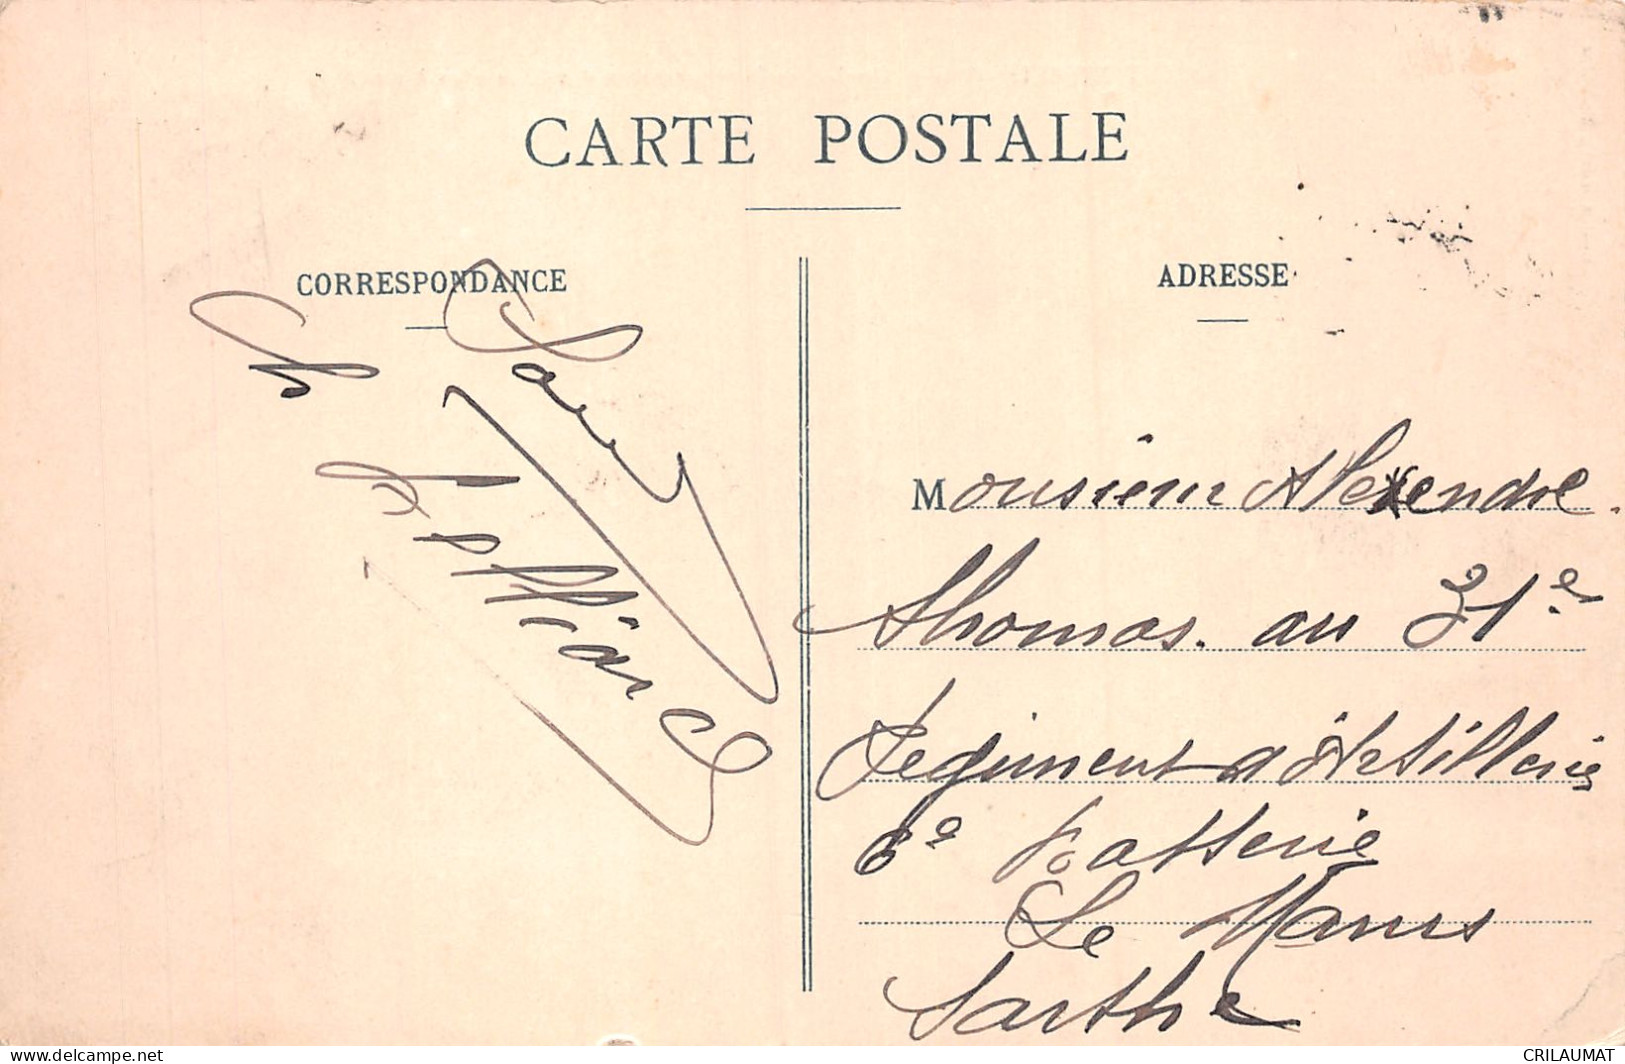 CARTE POSTALE
CORRESPONDANCE
ADRESSE
Ch
Monsieur Alexendre
Thomas. au 31e
Regiment d'Artillerie
6e Batterie
Le Mans
Sarthe
delcampe.net
CRILAUMAT